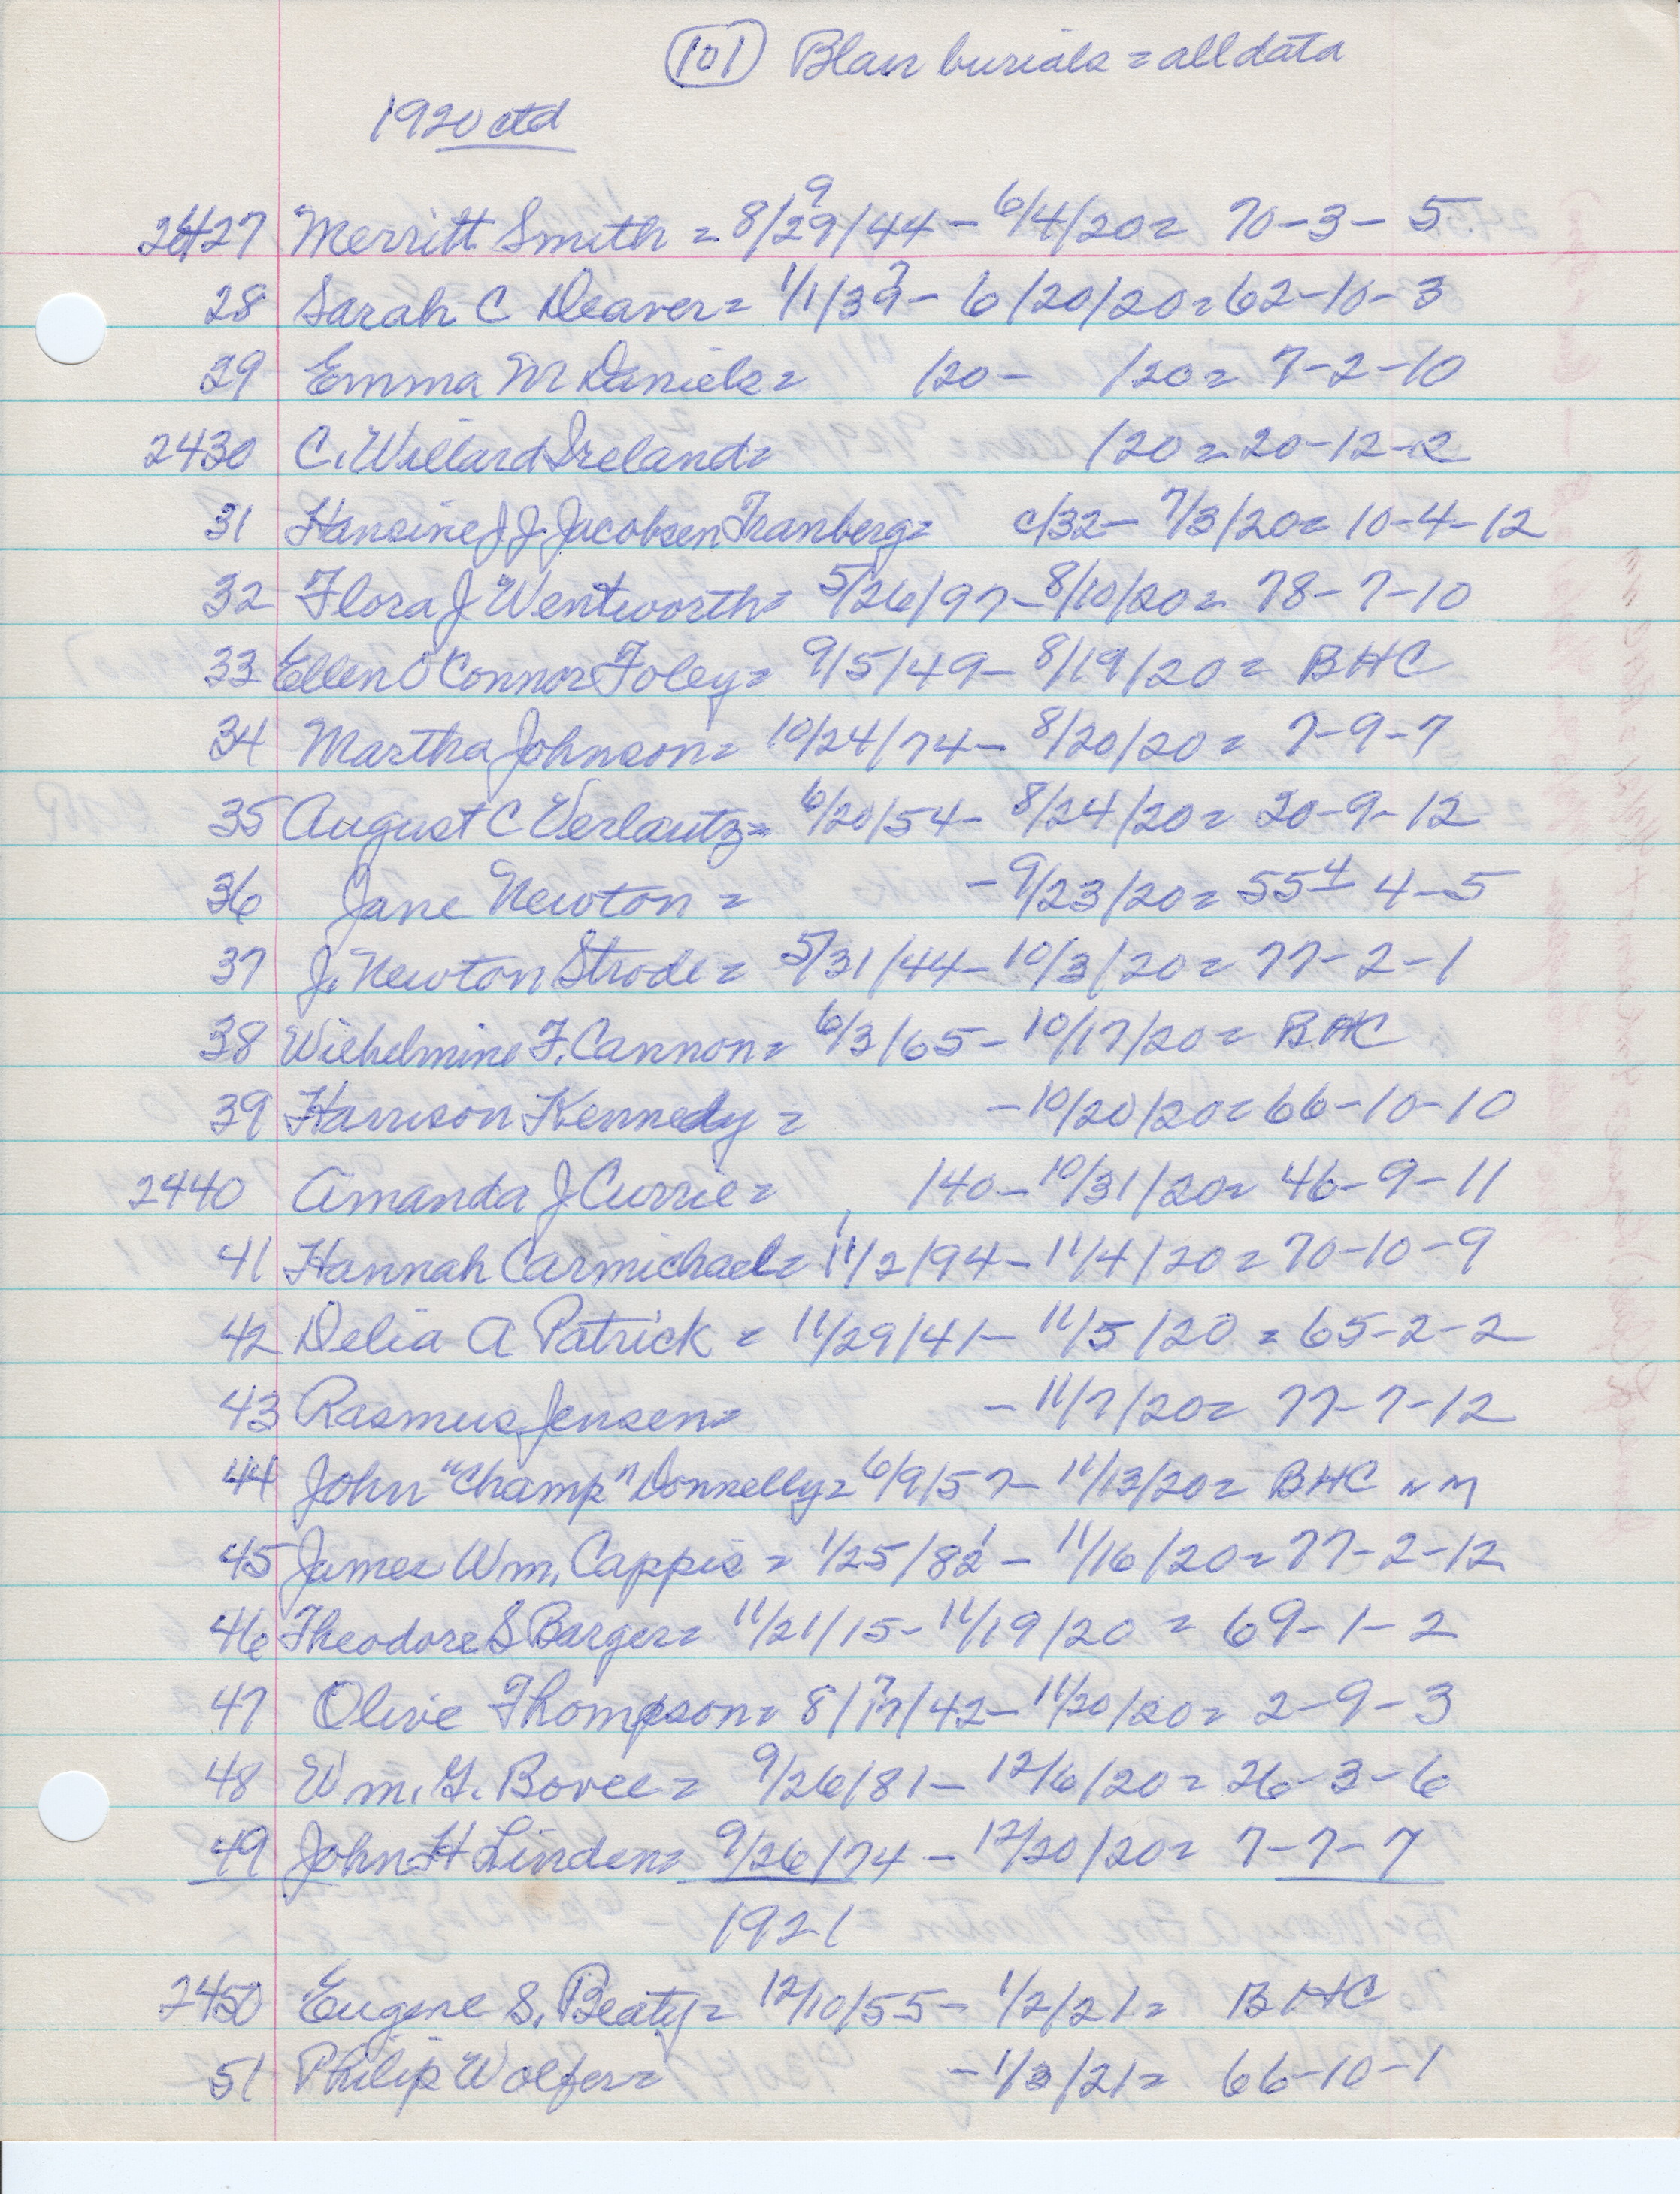 (101) Blair burials = all data
1920 ctd
2427 Merritt Smith = 8/29/44 - 6/4/20 = 70-3-5
28 Sarah C Deaver = 1/1/39 - 6/20/20 = 62-10-3
29 Emma M Daniels = /20 - /20 = 7-2-10
2430 C. Willard Ireland = /20 = 20-12-2
31 Hansine J J. Jacobsen Tranberg = c/32 - 7/3/20 = 10-4-12
32 Flora J Wentworth = 5/26/97 - 8/10/20 = 78-7-10
33 Ellen O'Connor Foley = 9/5/49 - 8/19/20 = BHC
34 Martha Johnson = 10/24/74 - 8/20/20 = 7-9-7
35 August C Verlautz = 6/20/54 - 8/24/20 = 20-9-12
36 Jane Newton = - 9/23/20 = 554 - 4-5
37 J. Newton Strode = 5/31/44 - 10/3/20 = 77-2-1
38 Wilhelmine F. Cannon = 6/3/65 - 10/17/20 = BHC
39 Harrison Kennedy = - 10/20/20 = 66-10-10
2440 Amanda J Currie = /40 - 10/31/20 = 46-9-11
41 Hannah Carmichael = 11/2/94 - 11/4/20 = 70-10-9
42 Delia A Patrick = 11/29/41 - 11/5/20 = 65-2-2
43 Rasmus Jensen = - 11/7/20 = 77-7-12
44 John "Champ" Donnelly = 6/9/57 - 11/13/20 = BHC NM
45 James Wm. Cappis = 1/25/82 - 11/16/20 = 77-2-12
46 Theodore S Barger = 11/21/15 - 11/19/20 = 69-1-2
47 Olive Thompson = 8/17/42 - 11/20/20 = 2-9-3
48 Wm. G. Bovee = 9/26/81 - 12/6/20 = 26-3-6
49 John H Linden = 9/26/74 - 12/20/20 = 7-7-7
1921
2450 Eugene S. Beaty = 12/10/55 - 1/2/21 = BHC
51 Philip Wolfer = - 1/3/21 = 66-10-1